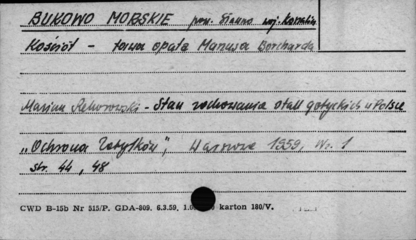 BUKOWO MORSKIE pow. Sławno woj. Koszalin
Kościół - ława opata Manusa Borcharda
Marian - Stan zachowania stall gotyckich w Polsce
„Ochrona Zabytków”, Warszawa 1959, Nr. 1
str. 44, 48
CWD B-15b Nr 515/P. GDA-809. 6.3.59. karton 180/V.